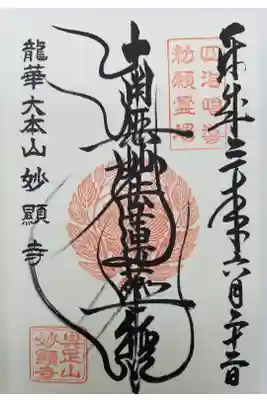 平成三十年六月
四海唱導
勅願霊場
南無妙法蓮華経
龍華大本山妙顯寺
具足山
妙顯寺